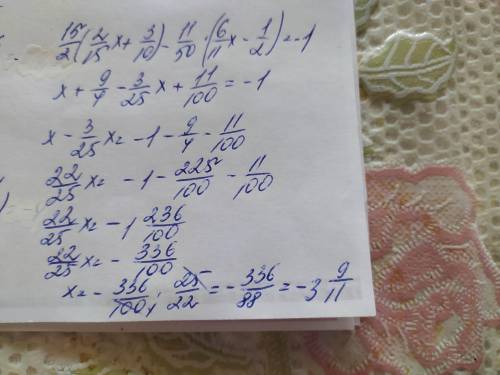 15/2(2/15x + 3/10) - 11/50 · (6/11x - 1/2) = -1
x + 9/4 - 3/25x + 11/100 = -1
x - 3/25x = -1 - 9/4 - 11/100
22/25x = -1 - 225/100 - 11/100
22/25x = -1 236/100
22/25x = -336/100
x = -336/100 · 25/22 = -336/88 = -3 9/11